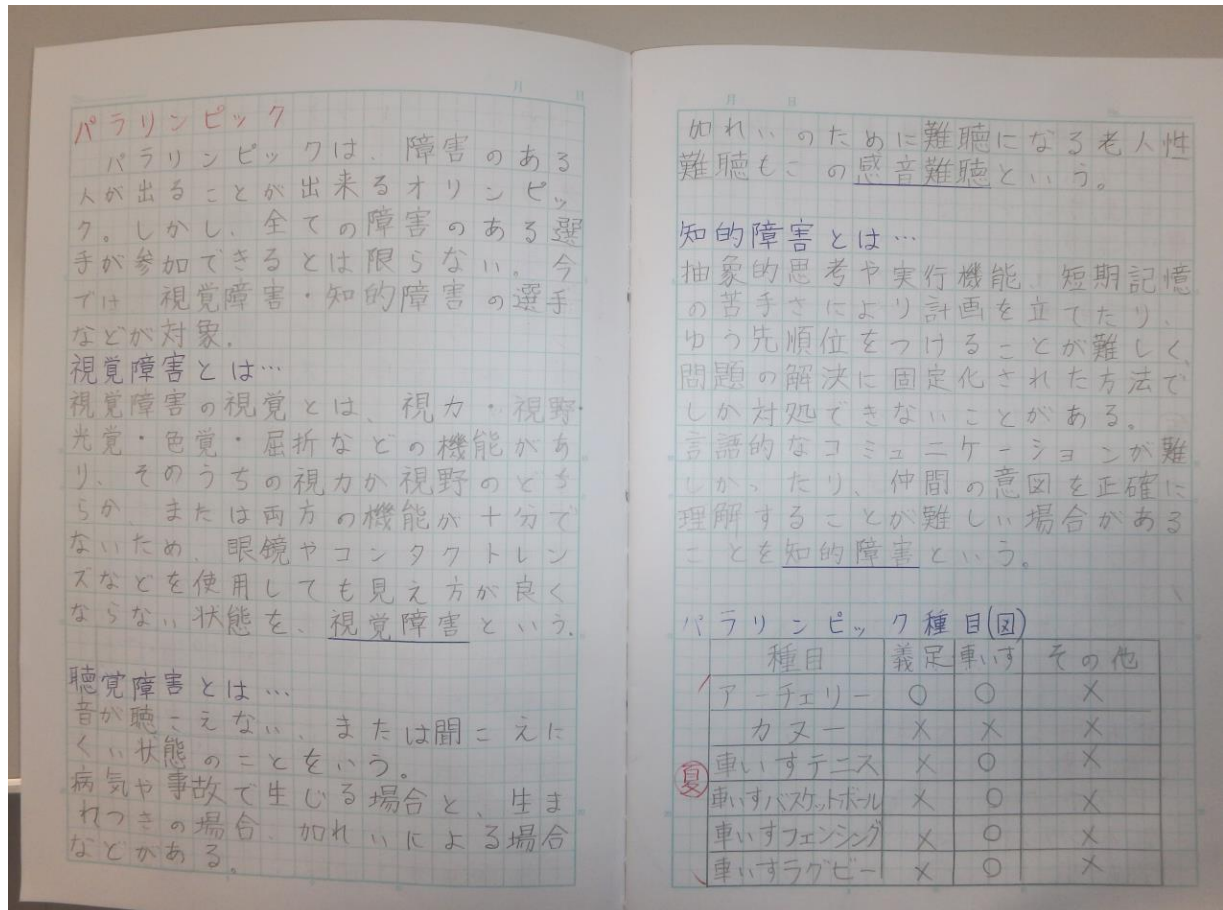 パラリンピック
パラリンピックは、障害のある
人が出ることが出来るオリンピッ
ク。しかし、全ての障害のある選
手が参加できるとは限らない。今
では 視覚障害・知的障害の選手
などが対象。
視覚障害とは…
視覚障害の視覚とは、視力・視野・
光覚・色覚・屈折などの機能があ
り、そのうちの視力か視野のどち
らか、または両方の機能が十分で
ないため、眼鏡やコンタクトレン
ズなどを使用しても見え方が良く
ならない状態を、視覚障害という。
聴覚障害とは…
音が聴こえない、または聞こえに
くい状態のことをいう。
病気や事故で生じる場合と、生ま
れつきの場合、加れいによる場合
などがある。
月 日
加れいのために難聴になる老人性
難聴もこの感音難聴という。
知的障害とは…
抽象的思考や実行機能、短期記憶
の苦手さにより計画を立てたり、
ゆう先順位をつけることが難しく、
問題の解決に固定化された方法で
しか対処できないことがある。
言語的なコミュニケーションが難
しかったり、仲間の意図を正確に
理解することが難しい場合がある
ことを知的障害という。
パラリンピック種目(図)
種目 義足 車いす その他
アーチェリー ○ ○ ×
カヌー × × ×
夏
車いすテニス × ○ ×
車いすバスケットボール × ○ ×
車いすフェンシング × ○ ×
車いすラグビー × ○ ×